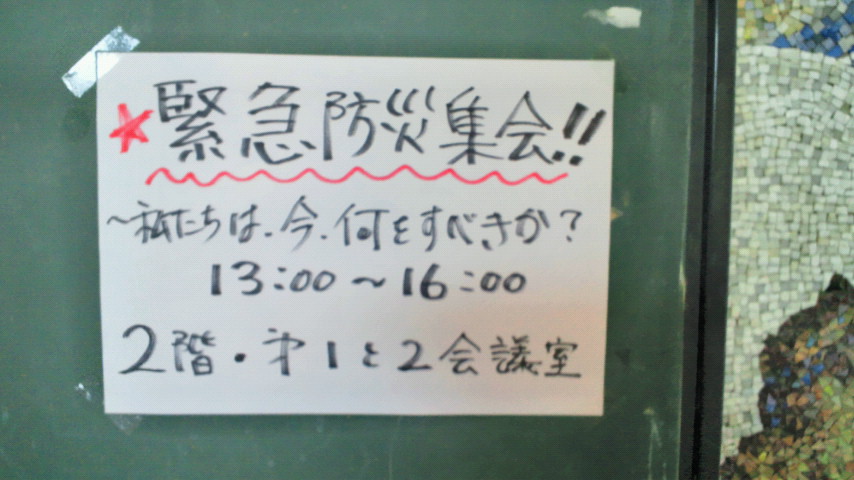 ★緊急防災集会!!
～私たちは、今、何をすべきか？
13:00～16:00
2階・第1と2会議室